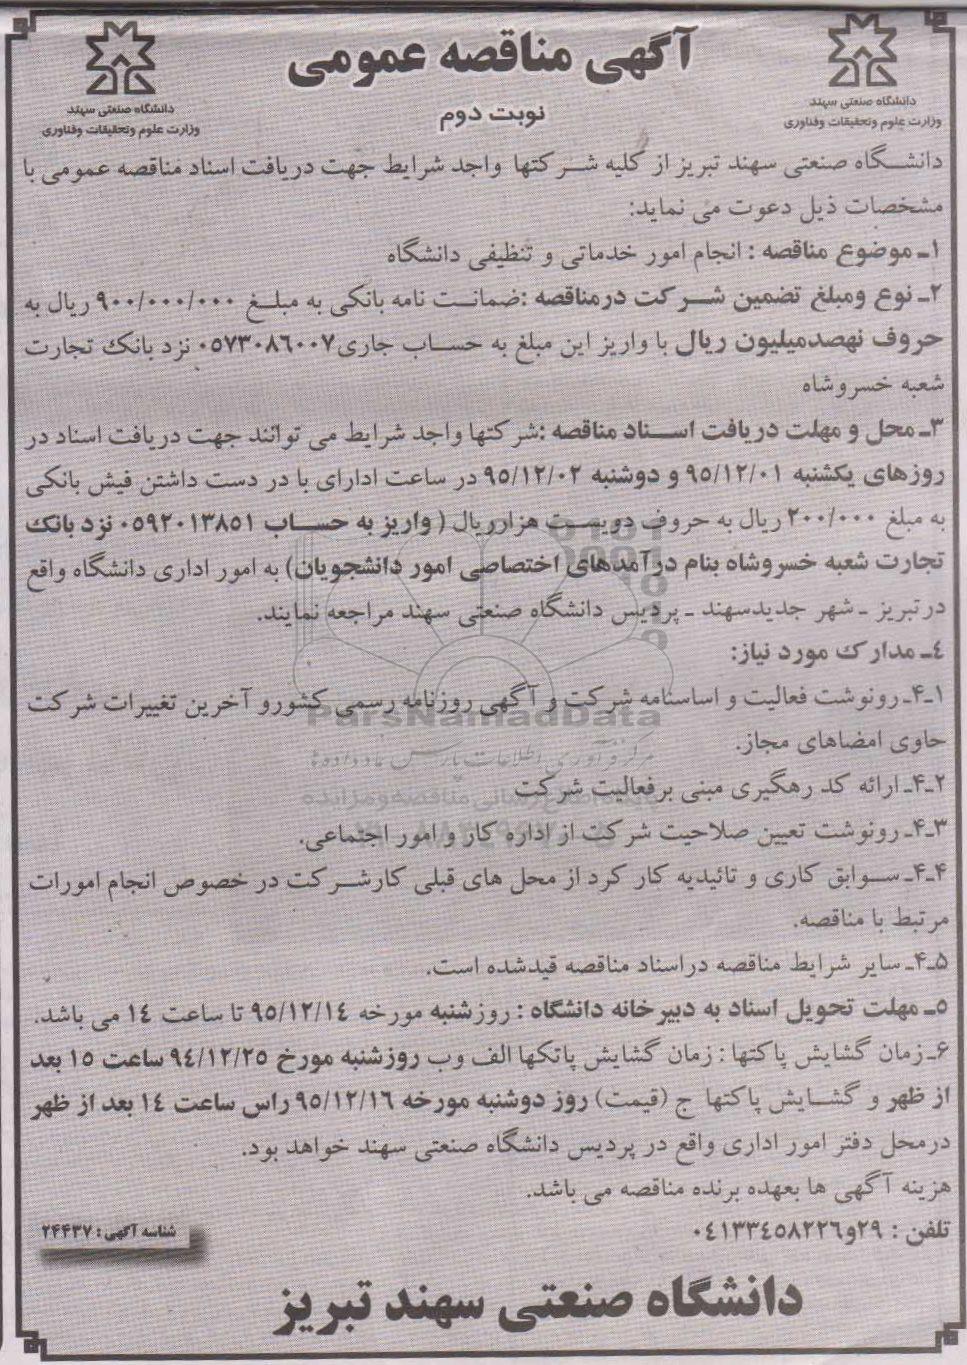 آگهی مناقصه عمومی
نوبت دوم
دانشگاه صنعتی سهند
وزارت علوم وتحقیقات وفناوری
دانشگاه صنعتی سهند
وزارت علوم وتحقیقات وفناوری
دانشگاه صنعتی سهند تبریز از کلیه شرکتها واجد شرایط جهت دریافت اسناد مناقصه عمومی با
مشخصات ذیل دعوت می نماید:
۱ـ موضوع مناقصه : انجام امور خدماتی و تنظیفی دانشگاه
۲ـ نوع ومبلغ تضمین شرکت درمناقصه :ضمانت نامه بانکی به مبلغ ۹۰۰/۰۰۰/۰۰۰ ریال به
حروف نهصدمیلیون ریال با واریز این مبلغ به حساب جاری۰۵۷۳۰۸۶۰۰۷ نزد بانک تجارت
شعبه خسروشاه
۳ـ محل و مهلت دریافت اسناد مناقصه :شرکتها واجد شرایط می توانند جهت دریافت اسناد در
روزهای یکشنبه ۹۵/۱۲/۰۱ و دوشنبه ۹۵/۱۲/۰۲ در ساعت ادارای با در دست داشتن فیش بانکی
به مبلغ ۲۰۰/۰۰۰ ریال به حروف دویست هزارریال ( واریز به حساب ۰۵۹۲۰۱۳۸۵۱ نزد بانک
تجارت شعبه خسروشاه بنام درآمدهای اختصاصی امور دانشجویان) به امور اداری دانشگاه واقع
در تبریز ـ شهر جدیدسهند ـ پردیس دانشگاه صنعتی سهند مراجعه نمایند.
٤ـ مدارک مورد نیاز:
۴ـ۱ـ رونوشت فعالیت و اساسنامه شرکت و آگهی روزنامه رسمی کشورو آخرین تغییرات شرکت
حاوی امضاهای مجاز.
۴ـ۲ـ ارائه کد رهگیری مبنی برفعالیت شرکت
۴ـ۳ـ رونوشت تعیین صلاحیت شرکت از اداره کار و امور اجتماعی.
۴ـ۴ـ سوابق کاری و تائیدیه کار کرد از محل های قبلی کارشرکت در خصوص انجام امورات
مرتبط با مناقصه.
۴ـ۵ـ سایر شرایط مناقصه دراسناد مناقصه قیدشده است.
۵ـ مهلت تحویل اسناد به دبیرخانه دانشگاه : روزشنبه مورخه ۹۵/۱۲/۱٤ تا ساعت ۱٤ می باشد.
۶ـ زمان گشایش پاکتها : زمان گشایش پاتکها الف وب روزشنبه مورخ ۹٤/۱۲/۲۵ ساعت ۱۵ بعد
از ظهر و گشایش پاکتها ج (قیمت) روز دوشنبه مورخه ۹۵/۱۲/۱۶ راس ساعت ۱٤ بعد از ظهر
درمحل دفتر امور اداری واقع در پردیس دانشگاه صنعتی سهند خواهد بود.
هزینه آگهی ها بعهده برنده مناقصه می باشد.
تلفن : ۲۹و۰٤۱۳۳٤۵۸۲۲۶
شناسه آگهی : ۲۴۴۳۷
دانشگاه صنعتی سهند تبریز
ParsNamadData